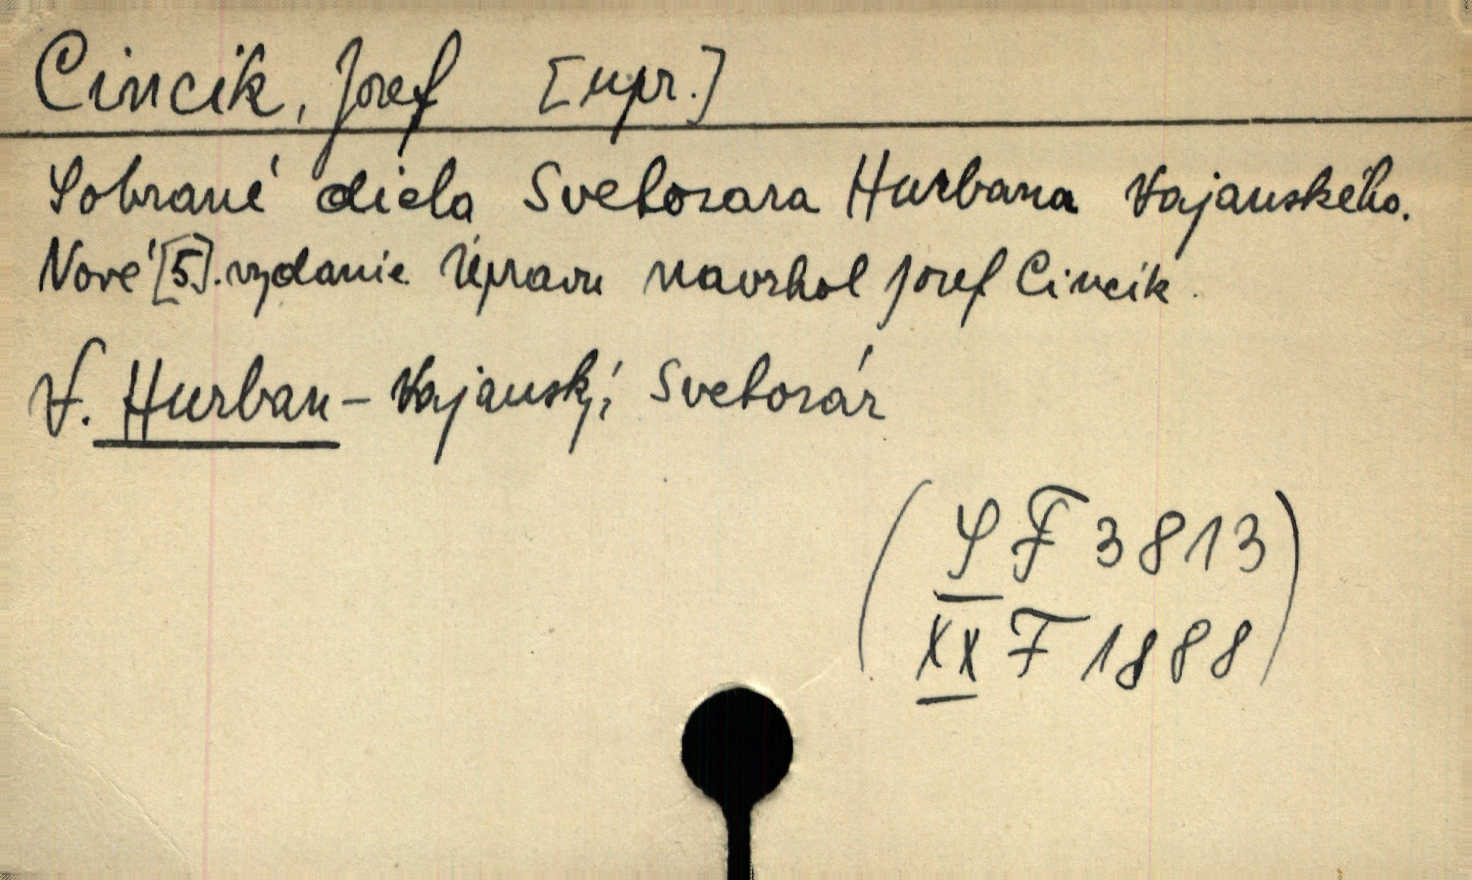 Cincik, Josef [upr.]
Sobrané diela Svetozara Hurbana Vajanského.
Nové [5]. vydanie. Úpravu navrhol Josef Cincik.
V. Hurban-Vajanský, Svetozár
(SF 3813)
XX F 1888